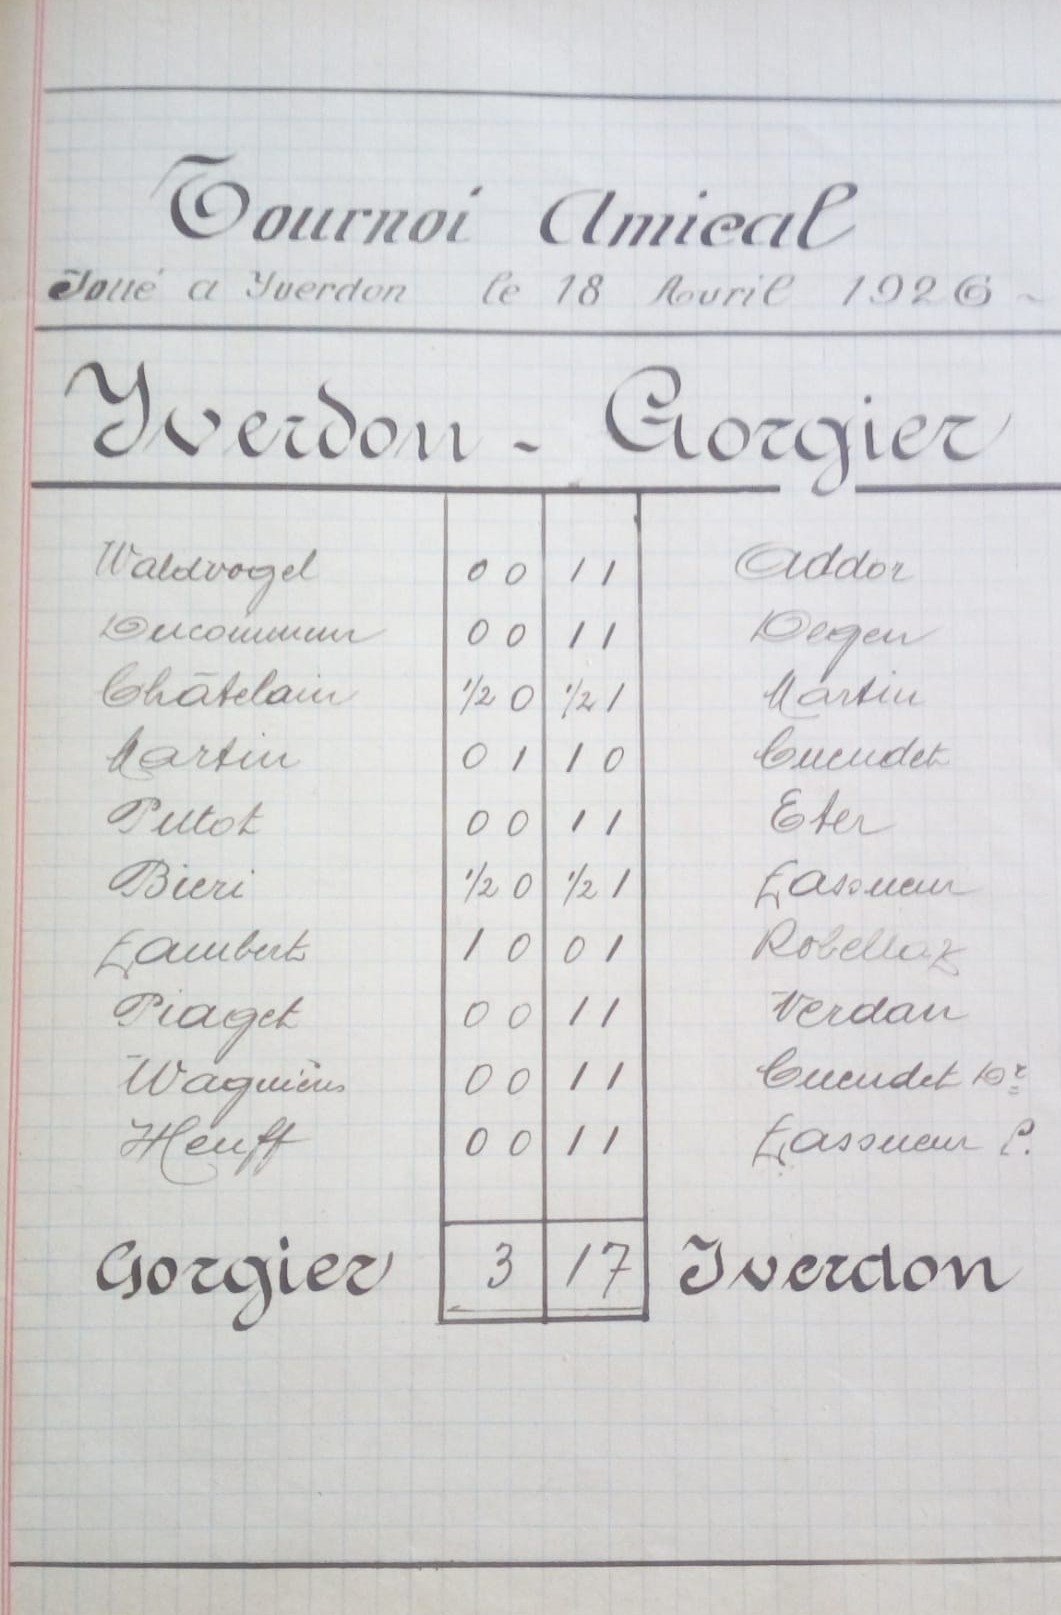 Tournoi Amical
Joué a Yverdon le 18 Avril 1926 ~
Yverdon - Gorgier
Waldvogel 0 0 1 1 Addor
Ducommun 0 0 1 1 Degen
Châtelain 1/2 0 1/2 1 Martin
Martin 0 1 1 0 Cuendet
Puttot 0 0 1 1 Eter
Bieri 1/2 0 1/2 1 Lassueur
Lambert 1 0 0 1 Robellaz
Piaget 0 0 1 1 Verdan
Waguièns 0 0 1 1 Cuendet Dr
Heuff 0 0 1 1 Lassueur P.
Gorgier 3 17 Yverdon